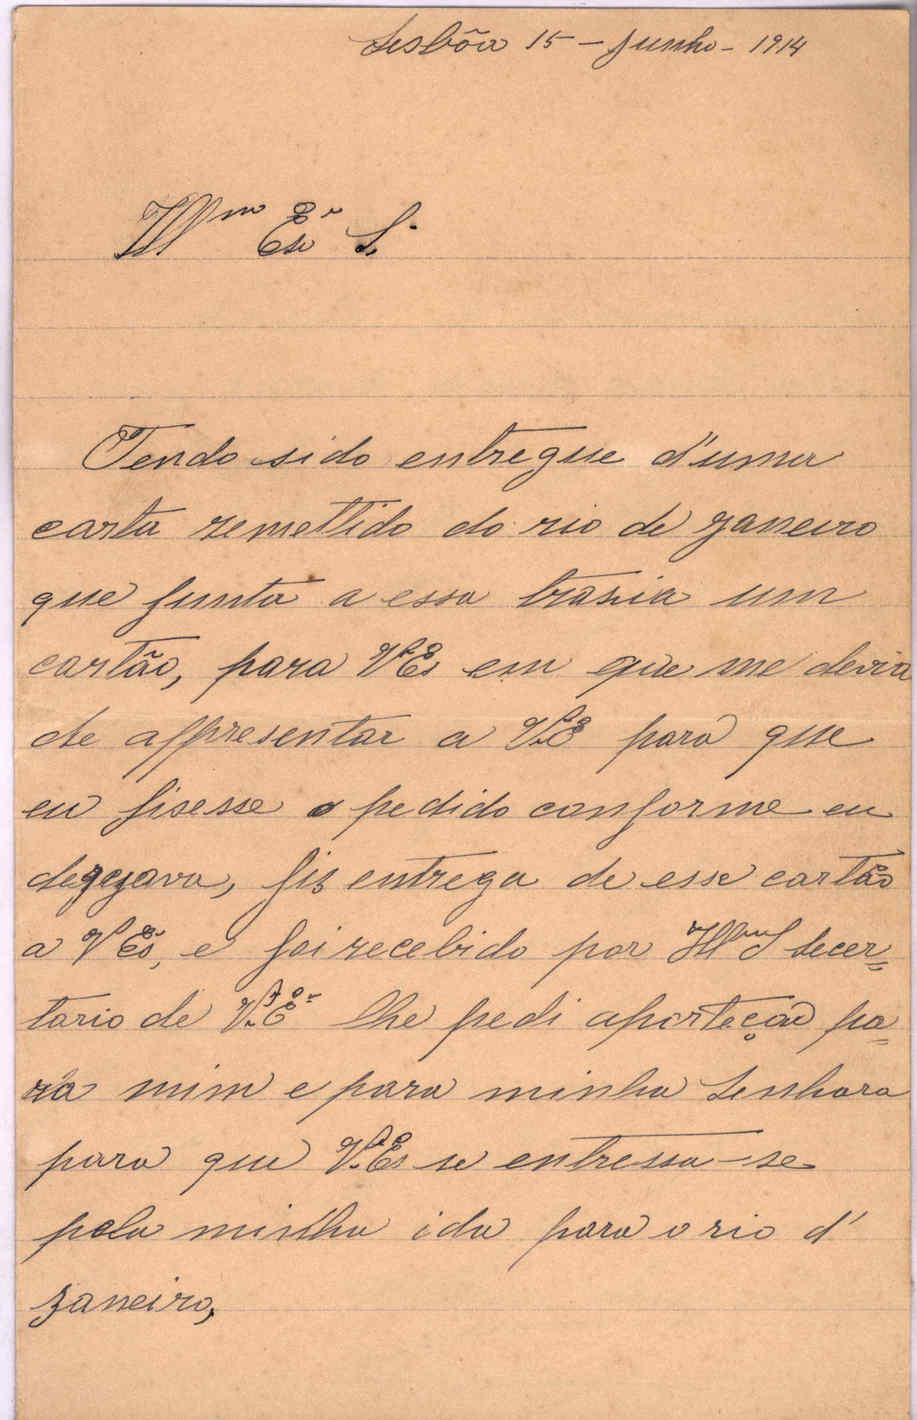 Lisbôa 15 - Junho - 1914
Illmo Exo Sr
Tendo sido entregue d'uma
carta remettido do rio de Janeiro
que junta a essa trasia um
cartão, para V Ex em que me devia
de appresentar a V. E para que
eu fisesse o pedido conforme eu
dezejava, fis entrega de esse cartão
a V Ex, e foi recebido por Illmo S secer=
tario de V. Eª lhe pedi aporteção pa=
ra mim e para minha Senhora
para que V. Ex se entressa-se
pela minha ida para o rio d'
Janeiro,